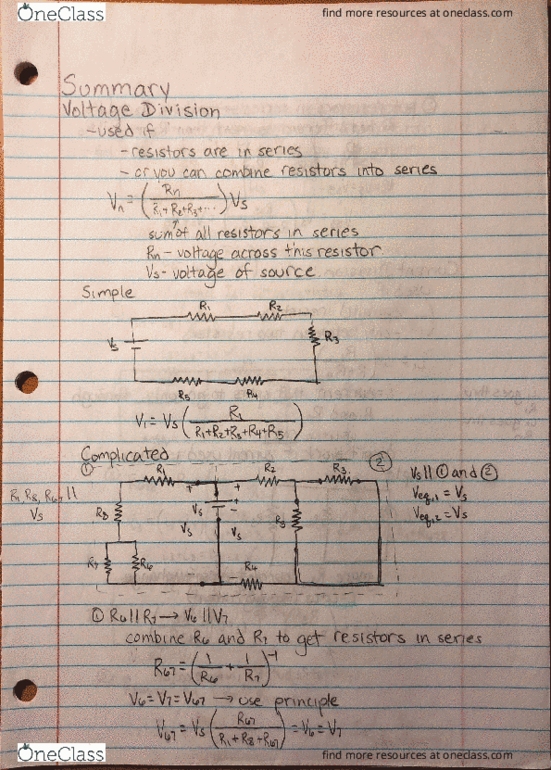 OneClass
find more resources at oneclass.com
Summary
Voltage Division
-used if
- resistors are in series
- or you can combine resistors into series
Vn = (Rn / R1+R2+R3+...) Vs
sum of all resistors in series
Rn - voltage across this resistor
Vs - voltage of source
Simple
R1 R2
Vs R3
R5 R4
V1 = Vs (R1 / R1+R2+R3+R4+R5)
Complicated
① R1 R2 R3 ②
Vs || ① and ②
Veq,1 = Vs
Veq,2 = Vs
R1, R8, R67 ||
Vs
R8 + Vs + - R5
Vs Vs
R7 R6 - - R4
① R6 || R7 → V6 || V7
combine R6 and R7 to get resistors in series
R67 = (1/R6 + 1/R7)^-1
V6 = V7 = V67 → use principle
V67 = Vs (R67 / R1+R8+R67) = V6 = V7
OneClass
find more resources at oneclass.com